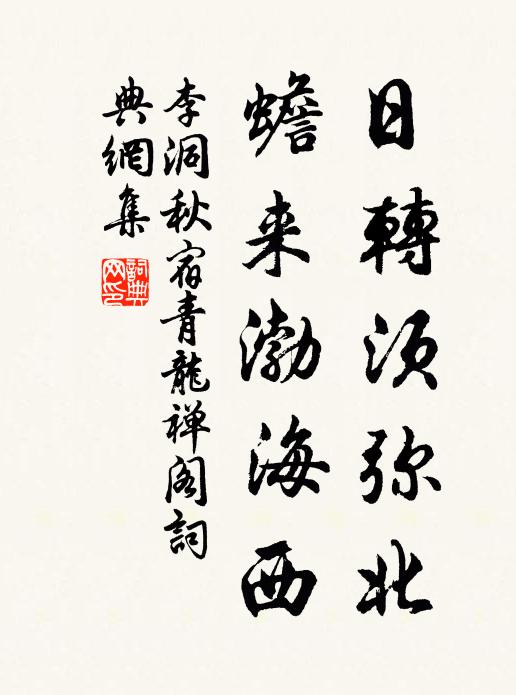 日轉須弥北
蟾来渤海西
李洞秋宿青龍禅阁詞
典網集
詞典网印